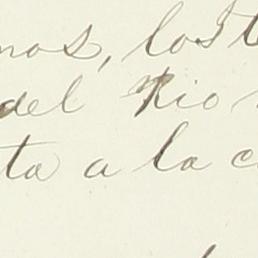 nos, los t
del Rio
ta a la c